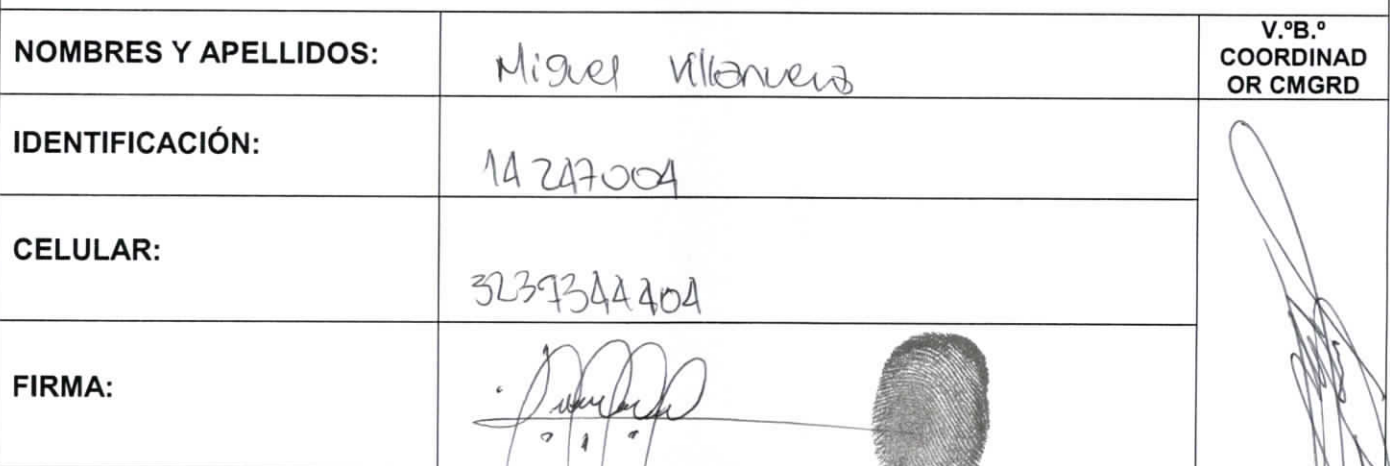 NOMBRES Y APELLIDOS:
Miguel Villanueva
V.ºB.º
COORDINAD
OR CMGRD
IDENTIFICACIÓN:
14 247004
CELULAR:
3237344404
FIRMA: